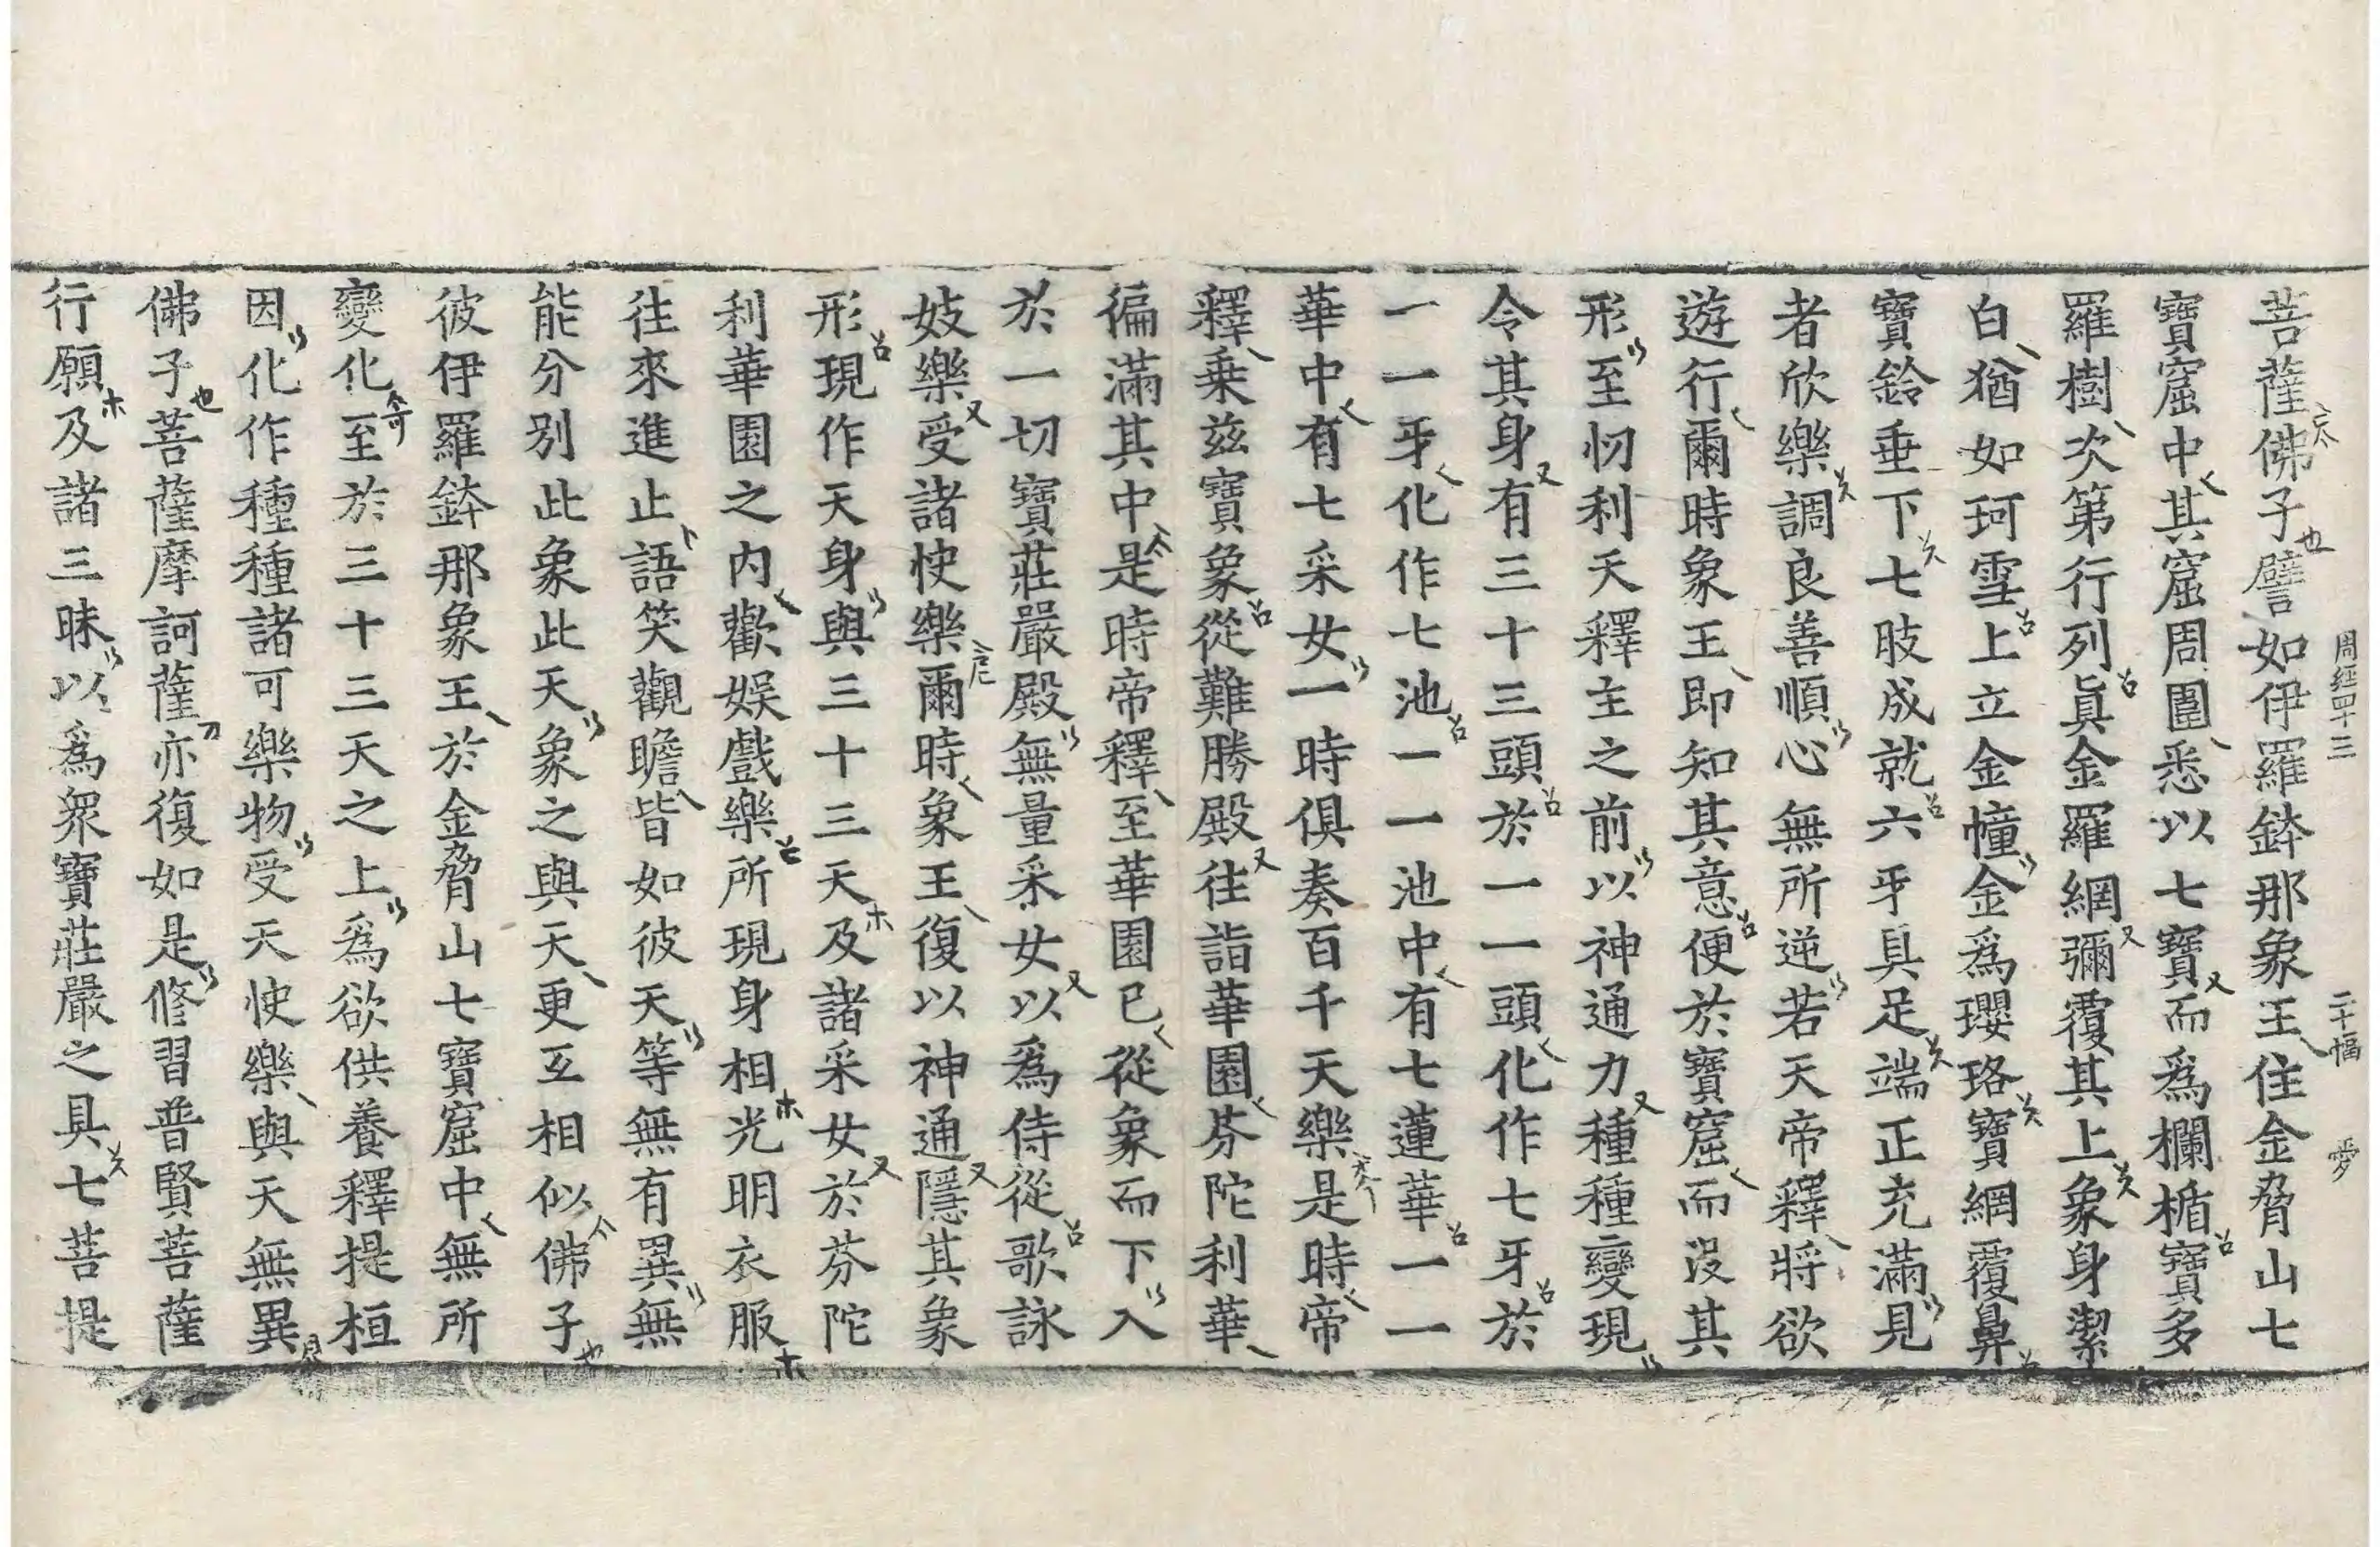 周經四十三 二十幅 愛
菩薩佛子譬如伊羅鉢那象王住金脅山七
寶窟中其窟周圍悉以七寶而爲欄楯寶多
羅樹次第行列眞金羅網彌覆其上象身潔
白猶如珂雪上立金幢金爲瓔珞寶網覆鼻
寶鈴垂下七肢成就六牙具足端正充滿見
者欣樂調良善順心無所逆若天帝釋將欲
遊行爾時象王即知其意便於寶窟而沒其
形至忉利天釋主之前以神通力種種變現
令其身有三十三頭於一一頭化作七牙於
一一牙化作七池一一池中有七蓮華一一
華中有七采女一時俱奏百千天樂是時帝
釋乗兹寶象從難勝殿往詣華園芬陀利華
徧滿其中是時帝釋至華園已從象而下入
於一切寶莊嚴殿無量采女以爲侍從歌詠
妓樂受諸快樂爾時象王復以神通隱其象
形現作天身與三十三天及諸采女於芬陀
利華園之内歡娛戲樂所現身相光明衣服
往來進止語笑觀瞻皆如彼天等無有異無
能分別此象此天象之與天更互相似佛子
彼伊羅鉢那象王於金脅山七寶窟中無所
變化至於三十三天之上爲欲供養釋提桓
因化作種種諸可樂物受天快樂與天無異
佛子菩薩摩訶薩亦復如是修習普賢菩薩
行願及諸三昧以爲衆寶莊嚴之具七菩提